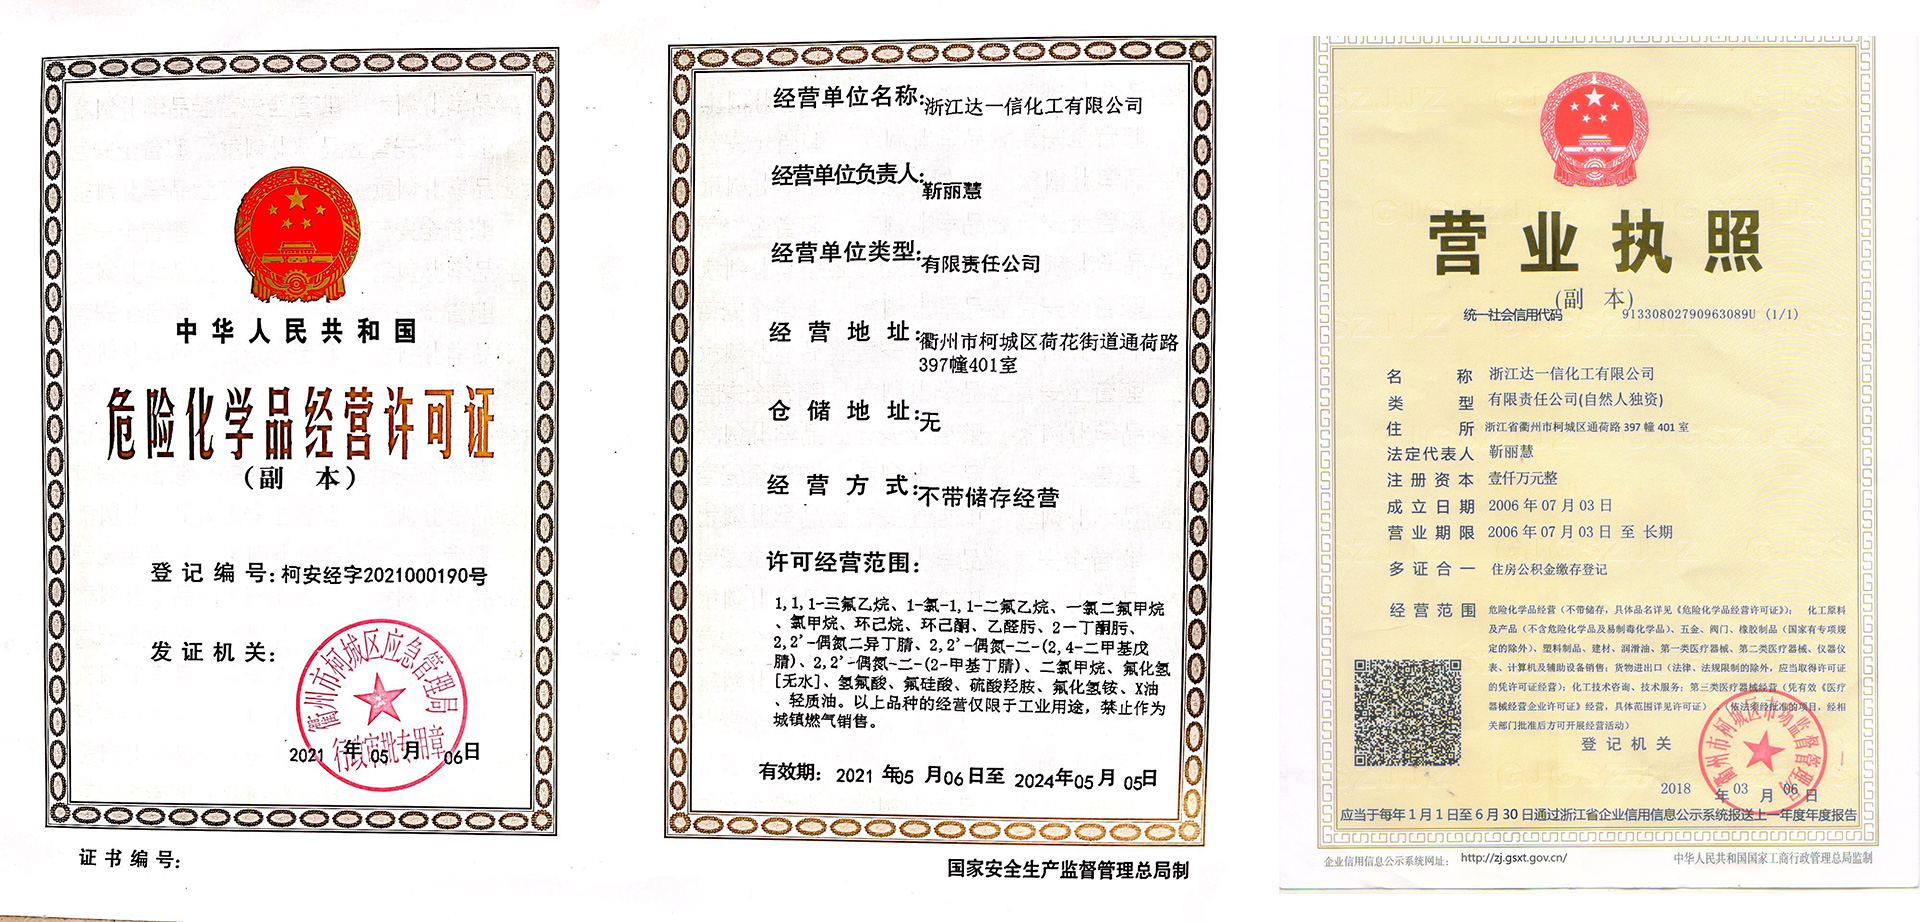 中华人民共和国
危险化学品经营许可证
(副 本)
登记编号:柯安经字2021000190号
发证机关:
衢州市柯城区应急管理局
行政审批专用章
2021 年 05 月 06日
证书编号:
经营单位名称:浙江达一信化工有限公司
经营单位负责人:靳丽慧
经营单位类型:有限责任公司
经营地址:衢州市柯城区荷花街道通荷路
397幢401室
仓储地址:无
经营方式:不带储存经营
许可经营范围:
1,1,1-三氟乙烷、1-氯-1,1-二氟乙烷、一氯二氟甲烷
、氯甲烷、环己烷、环己酮、乙醛肟、2-丁酮肟、
2,2'-偶氮二异丁腈、2,2'-偶氮-二-(2,4-二甲基戊
腈)、2,2'-偶氮-二-(2-甲基丁腈)、二氯甲烷、氟化氢
[无水]、氢氟酸、氟硅酸、硫酸羟胺、氟化氢铵、X油
、轻质油。以上品种的经营仅限于工业用途，禁止作为
城镇燃气销售。
有效期: 2021 年05 月06日至 2024年05月05日
国家安全生产监督管理总局制
营业执照
(副 本)
统一社会信用代码 91330802790963089U (1/1)
名 称 浙江达一信化工有限公司
类 型 有限责任公司(自然人独资)
住 所 浙江省衢州市柯城区通荷路 397 幢 401 室
法定代表人 靳丽慧
注册资本 壹仟万元整
成立日期 2006 年 07 月 03 日
营业期限 2006 年 07 月 03 日 至 长期
多证合一 住房公积金缴存登记
经营范围 危险化学品经营（不带储存，具体品名详见《危险化学品经营许可证》）； 化工原料
及产品（不含危险化学品及易制毒化学品）、五金、阀门、橡胶制品（国家有专项规
定的除外）、塑料制品、建材、润滑油、第一类医疗器械、第二类医疗器械、仪器仪
表、计算机及辅助设备销售；货物进出口（法律、法规限制的除外，应当取得许可证
的凭许可证经营）；化工技术咨询、技术服务；第三类医疗器械经营（凭有效《医疗
器械经营企业许可证》经营，具体范围详见许可证） （依法须经批准的项目，经相
关部门批准后方可开展经营活动）
登记机关
衢州市柯城区市场监督管理局
2018 年 03 月 06 日
应当于每年1月1日至6月30日通过浙江省企业信用信息公示系统报送上一年度年度报告
企业信用信息公示系统网址： http://zj.gsxt.gov.cn/
中华人民共和国国家工商行政管理总局监制